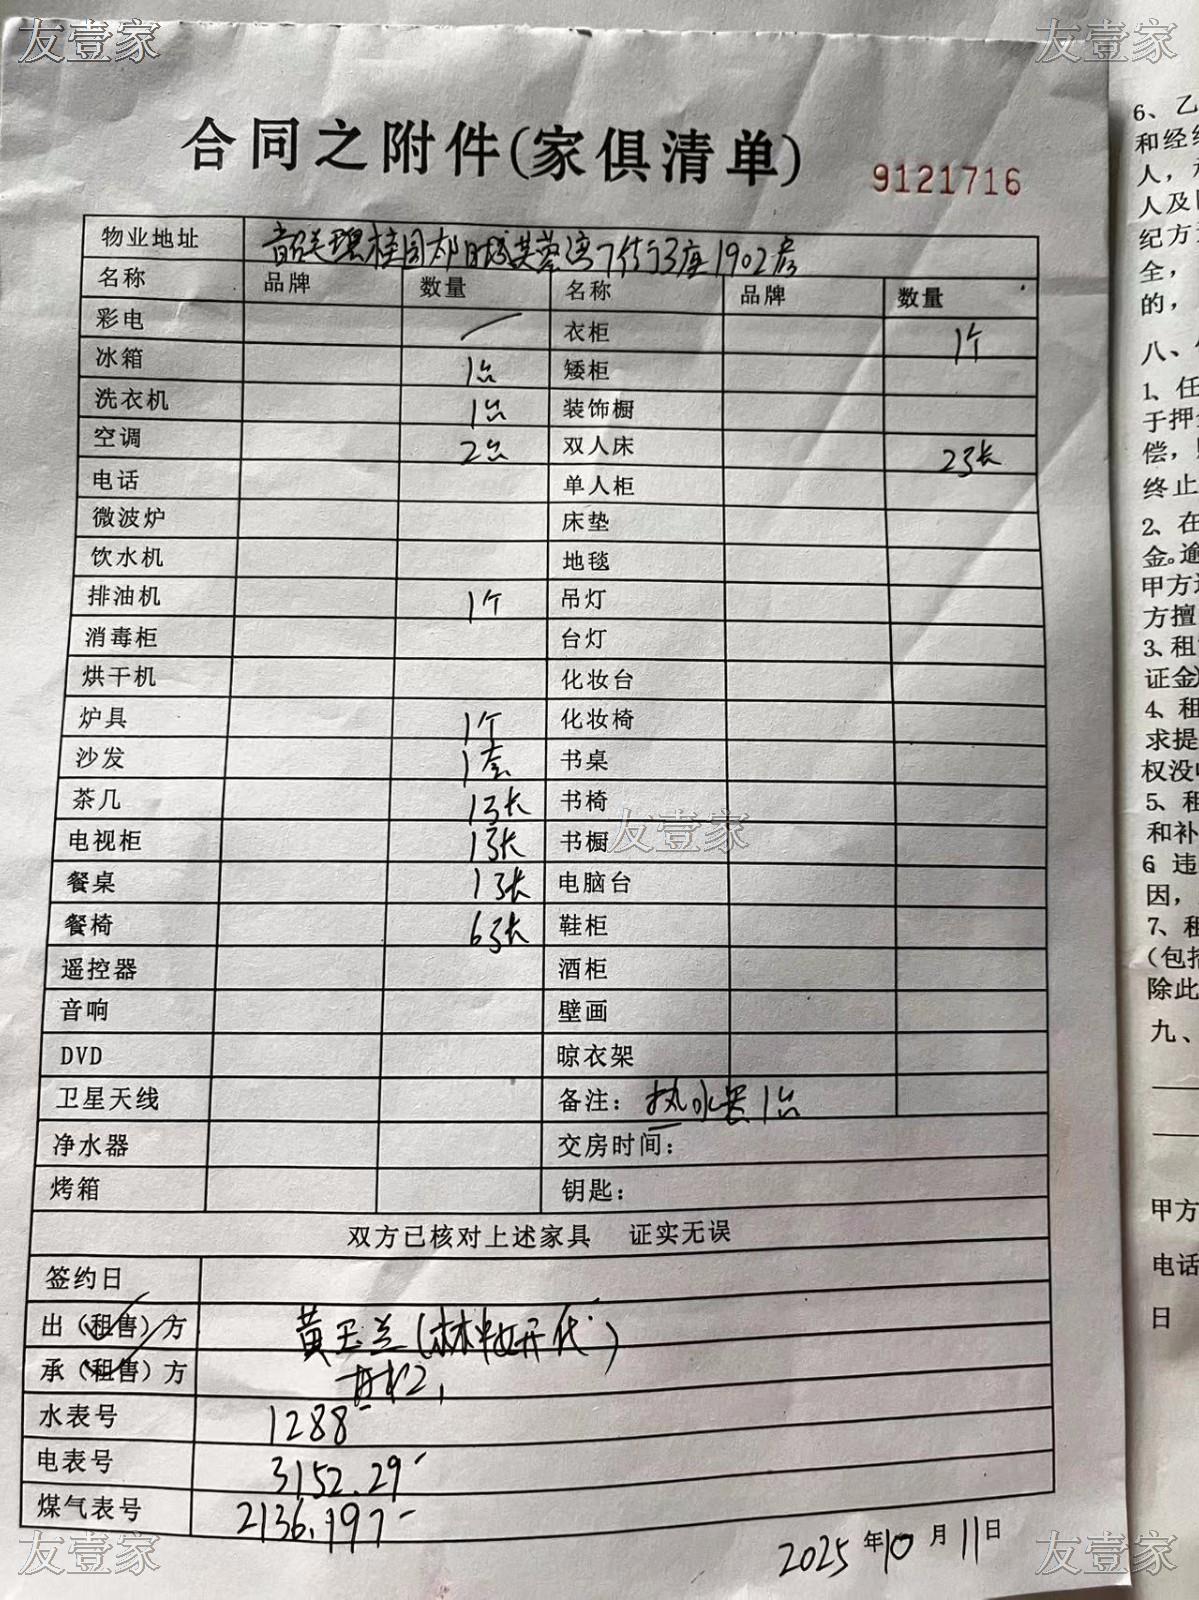 友壹家 友壹家
合同之附件(家俱清单) 9121716
物业地址 韶关碧桂园太阳城芙蓉湾7街3座1902房
名称 品牌 数量 名称 品牌 数量
彩电 / 衣柜 1个
冰箱 1台 矮柜
洗衣机 1台 装饰橱
空调 2台 双人床 2张
电话 单人柜
微波炉 床垫
饮水机 地毯
排油机 1个 吊灯
消毒柜 台灯
烘干机 化妆台
炉具 1个 化妆椅
沙发 1套 书桌
茶几 1张 书椅
电视柜 1张 书橱
友壹家
餐桌 1张 电脑台
餐椅 6张 鞋柜
遥控器 酒柜
音响 壁画
DVD 晾衣架
卫星天线 备注：热水器1台
净水器 交房时间：
烤箱 钥匙：
双方已核对上述家具 证实无误
签约日
出（租售）方 黄玉兰(林 代)
承（租售）方
水表号 1288
电表号 3152.29
煤气表号 2136.197
2025年10月11日
友壹家 友壹家
6、乙
和经纪
人，
人及
纪方
全，
的，
八、
1、任
于押
偿，
终止
2、在
金。逾
甲方
方擅
3、租
证金
4、租
求提
权没
5、租
和补
6 违
因，
7、租
（包括
除此
九、
甲方
电话
日